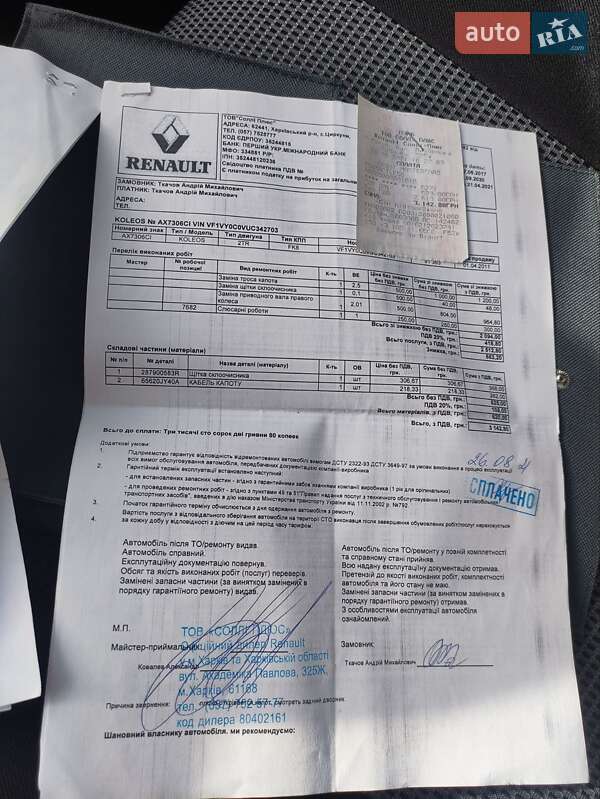 auto RIA .com
RENAULT
ТОВ"Соллі Плюс"
АДРЕСА: 62441, Харківський р-н, с.Циркуни,
ТЕЛ. (057) 7628777
КОД ЄДРПОУ: 36244815
БАНК: ПЕРШИЙ УКР.МІЖНАРОДНИЙ БАНК
МФО: 334851 Р/Р:
ІПН: 362448120236
Свідоцтво платника ПДВ №
Є платником податку на прибуток на загальних
ЗАМОВНИК: Ткачов Андрій Михайлович
ПЛАТНИК: Ткачов Андрій Михайлович
АДРЕСА:
ТЕЛ.
ТОВ СОЛЛІ ПЛЮС
3 142.80ГРН
21.04.2021
KOLEOS № AX7306CI VIN VF1VY0C0VUC342703
Номерний знак Тип / Модель Тип двигуна Тип КПП
AX7306CI KOLEOS 2TR FK8 01.04.2017
Перелік виконаних робіт
Мастер № робочої позиції Вид ремонтних робіт К-ть ВЕ Ціна без знижки без ПДВ, грн. Сума зі знижкою без ПДВ, грн. Сума зі знижкою з ПДВ, грн.
Заміна троса капота 1 2,5 500,00 1 000,00 1 200,00
Заміна щітки склоочисника 1 0,1 500,00 40,00 48,00
Заміна приводного вала правого колеса 1 2,01 500,00 804,00 964,80
7682 Слюсарні роботи 1 1 250,00 250,00 300,00
Всього зі знижкою без ПДВ, грн.: 2 094,00
ПДВ 20%, грн.: 418,80
Всього послуги, з ПДВ, грн.: 2 512,80
Знижка, грн.:
Складові частини (матеріали)
№ п/п № деталі Назва деталі (матеріалу) К-ть ОВ Ціна без ПДВ, грн. Сума без ПДВ, грн. Сума з ПДВ, грн.
1 287900583R Щітка склоочисника 1 шт 306,67 306,67 368,00
2 65620JY40A КАБЕЛЬ КАПОТУ 1 шт 218,33 218,33 262,00
Всього без ПДВ, грн.: 525,00
ПДВ 20%, грн.: 105,00
Всього матеріалів, з ПДВ, грн.: 630,00
Всього, з ПДВ, грн.: 3 142,80
Всього до сплати: Три тисячі сто сорок дві гривни 80 копеек
Додаткові умови:
1. Підприємство гарантує відповідність відремонтованих автомобілів вимогам ДСТУ 2322-93 ДСТУ 3649-97 за умови виконання в процесі експлуатації
всіх вимог обслуговування автомобіля, передбачених документацією компанії-виробника
2. Гарантійний термін експлуатації встановлено наступний:
- для встановлених запасних частин - згідно з гарантійними забов'язаннями компанії виробника (1 рік для оригінальних)
- для проведених ремонтних робіт - згідно з пунктами 49 та 51"Правил надання послуг з технічного обслуговування і ремонту автомобільних
транспортних засобів", введених в дію наказом Міністерства транспорту України від 11.11.2002 р. №792
3. Початок гарантійного терміну обчислюється з дня одержання автомобіля з ремонту.
4. Вартість послуги з відповідального зберігання автомобіля на території СТО виконавця після завершення обумовлених робіт/послуг нараховується
за кожну добу у відповідності з діючим на цей період часу тарифом.
26.08.21
СПЛАЧЕНО
Автомобіль після ТО/ремонту видав.
Автомобіль справний.
Експлуатаційну документацію повернув.
Обсяг та якість виконаних робіт (послуг) перевірив.
Замінені запасні частини (за винятком замінених в
порядку гарантійного ремонту) видав.
Автомобіль після ТО/ремонту у повній комплектності
та справному стані прийняв.
Всю надану експлуатаційну документацію отримав.
Претензій до якості виконаних робіт, комплектності
автомобіля та його стану не маю.
Замінені запасні частини (за винятком замінених в
порядку гарантійного ремонту) отримав.
З особливостями експлуатації автомобіля
ознайомлений.
М.П.
Майстер-приймальник
Ковалев Александр
ТОВ «СОЛЛІ ПЛЮС»
Офіційний дилер Renault
у м.Харків та Харківській області
вул. Академіка Павлова, 325Ж,
м.Харків, 61168
тел. (057) 762-87-77
код дилера 80402161
Замовник:
Ткачов Андрій Михайлович
Причина звернення: смотреть задний дворник.
Шановний власнику автомобіля, ми рекомендуємо: